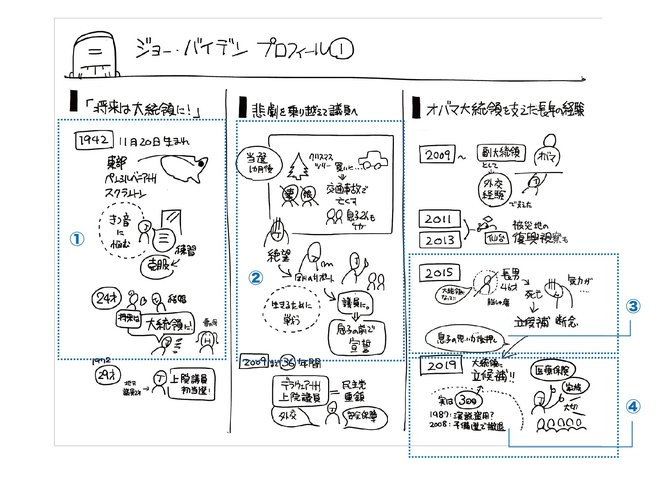 ジョー・バイデン プロフィール①
「将来は大統領に!」
1942 11月20日生まれ
東部
ペンシルベニア州
スクラントン
①
きつ音
に
悩む
練習
克服
24才
結婚
将来は
大統領に!
1972
29才
上院議員
初当選!
悲劇を乗り越えて議員へ
当選
1カ月後
クリスマス
ツリー
買いに…
妻 娘
交通事故で
亡くす
息子2人も
ケガ
絶望
②
生きるために
戦う
議員に。
息子の前で
宣誓
2009まで36年間
デラウェア州
上院議員
民主党
重鎮
外交
安全保障
オバマ大統領を支えた長年の経験
2009~
副大統領
として
オバマ
外交
経験
で支えた
2011
2013
被災地の
仙台 復興視察も
2015
長男
46才
脳しゅ瘍
大統領に
なって
死亡
気力が…
立候補 断念
③
息子の思いが後押し
2019 大統領に
立候補!!
実は 3回目
1987:演説盗用?
2008:予備選で撤退
医療保険
家族
大切
④